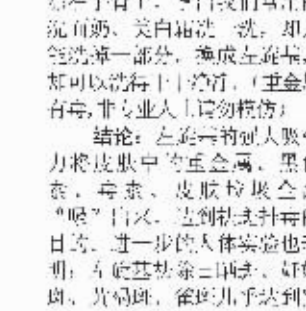 洗面奶、美白霜洗一洗，
能洗掉一部分，换成左旋基，
却可以洗得干干净净，（重金属
有毒，非专业人士请勿模仿）
结论：左旋基的强大吸
力将皮肤中的重金属、黑
素、毒素、皮肤垃圾全
“吸”出来，达到祛斑排毒
目的。进一步的人体实验也
明：左旋基祛除日晒斑、妊
斑、黄褐斑、雀斑几乎达到